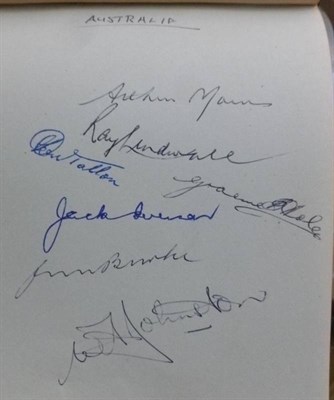 AUSTRALIA
Arthur Morris
Ray Lindwall
Don Tallon
Graeme Hole
Jack Iverson
Jim Burke
W A Johnston